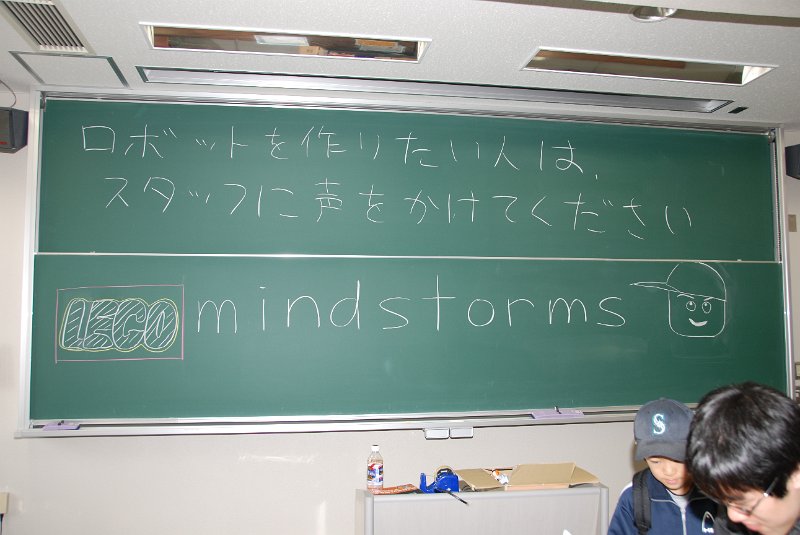 ロボットを作りたい人は、
スタッフに声をかけてください
LEGO mindstorms
S